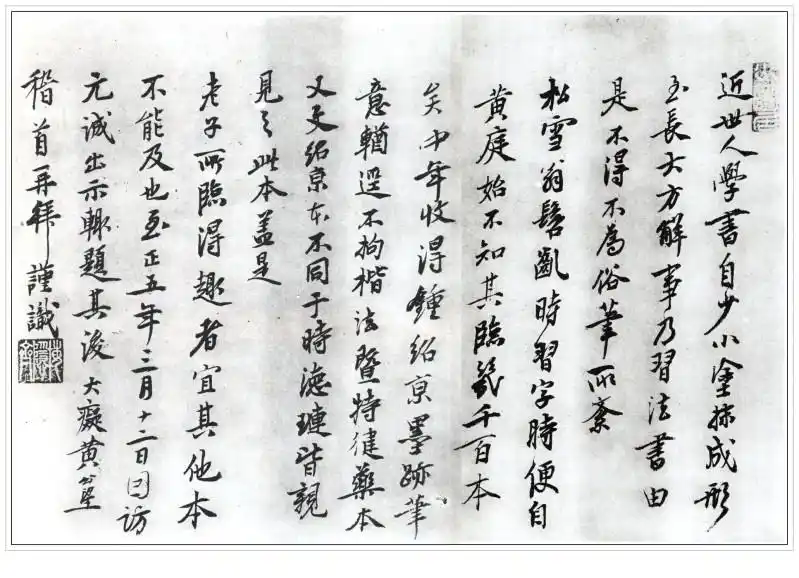 近世人學書自少小塗抹成形
至長大方解事乃習法書由
是不得不為俗筆所紊
松雪翁髫齔時習字時便自
黃庭始不知其臨幾千百本
矣中年收得鍾紹京墨跡筆
意輶逕不拘楷法暨特健藥本
又是紹京本不同于時德璉皆親
見之此本盖是
老子所臨得趣者宜其他本
不能及也至正五年三月十二日因訪
元誠出示輙題其後大癡黃公望
稽首再拜 謹識